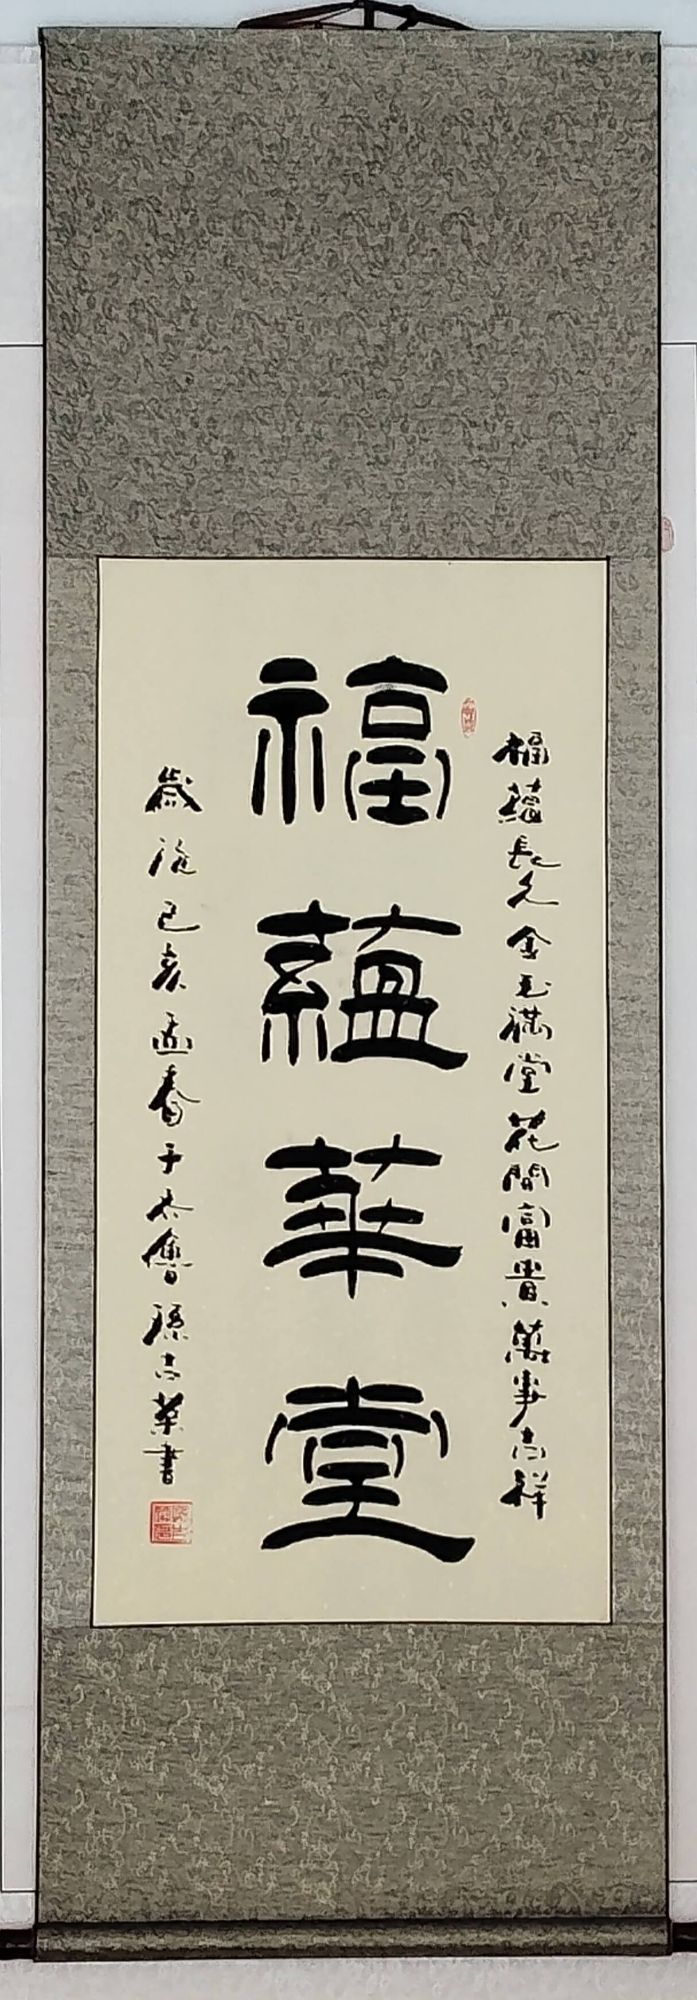 福蘊長久金玉滿堂花開富貴萬事吉祥
福蘊華堂
歲說己亥孟春于太倉孫古業書